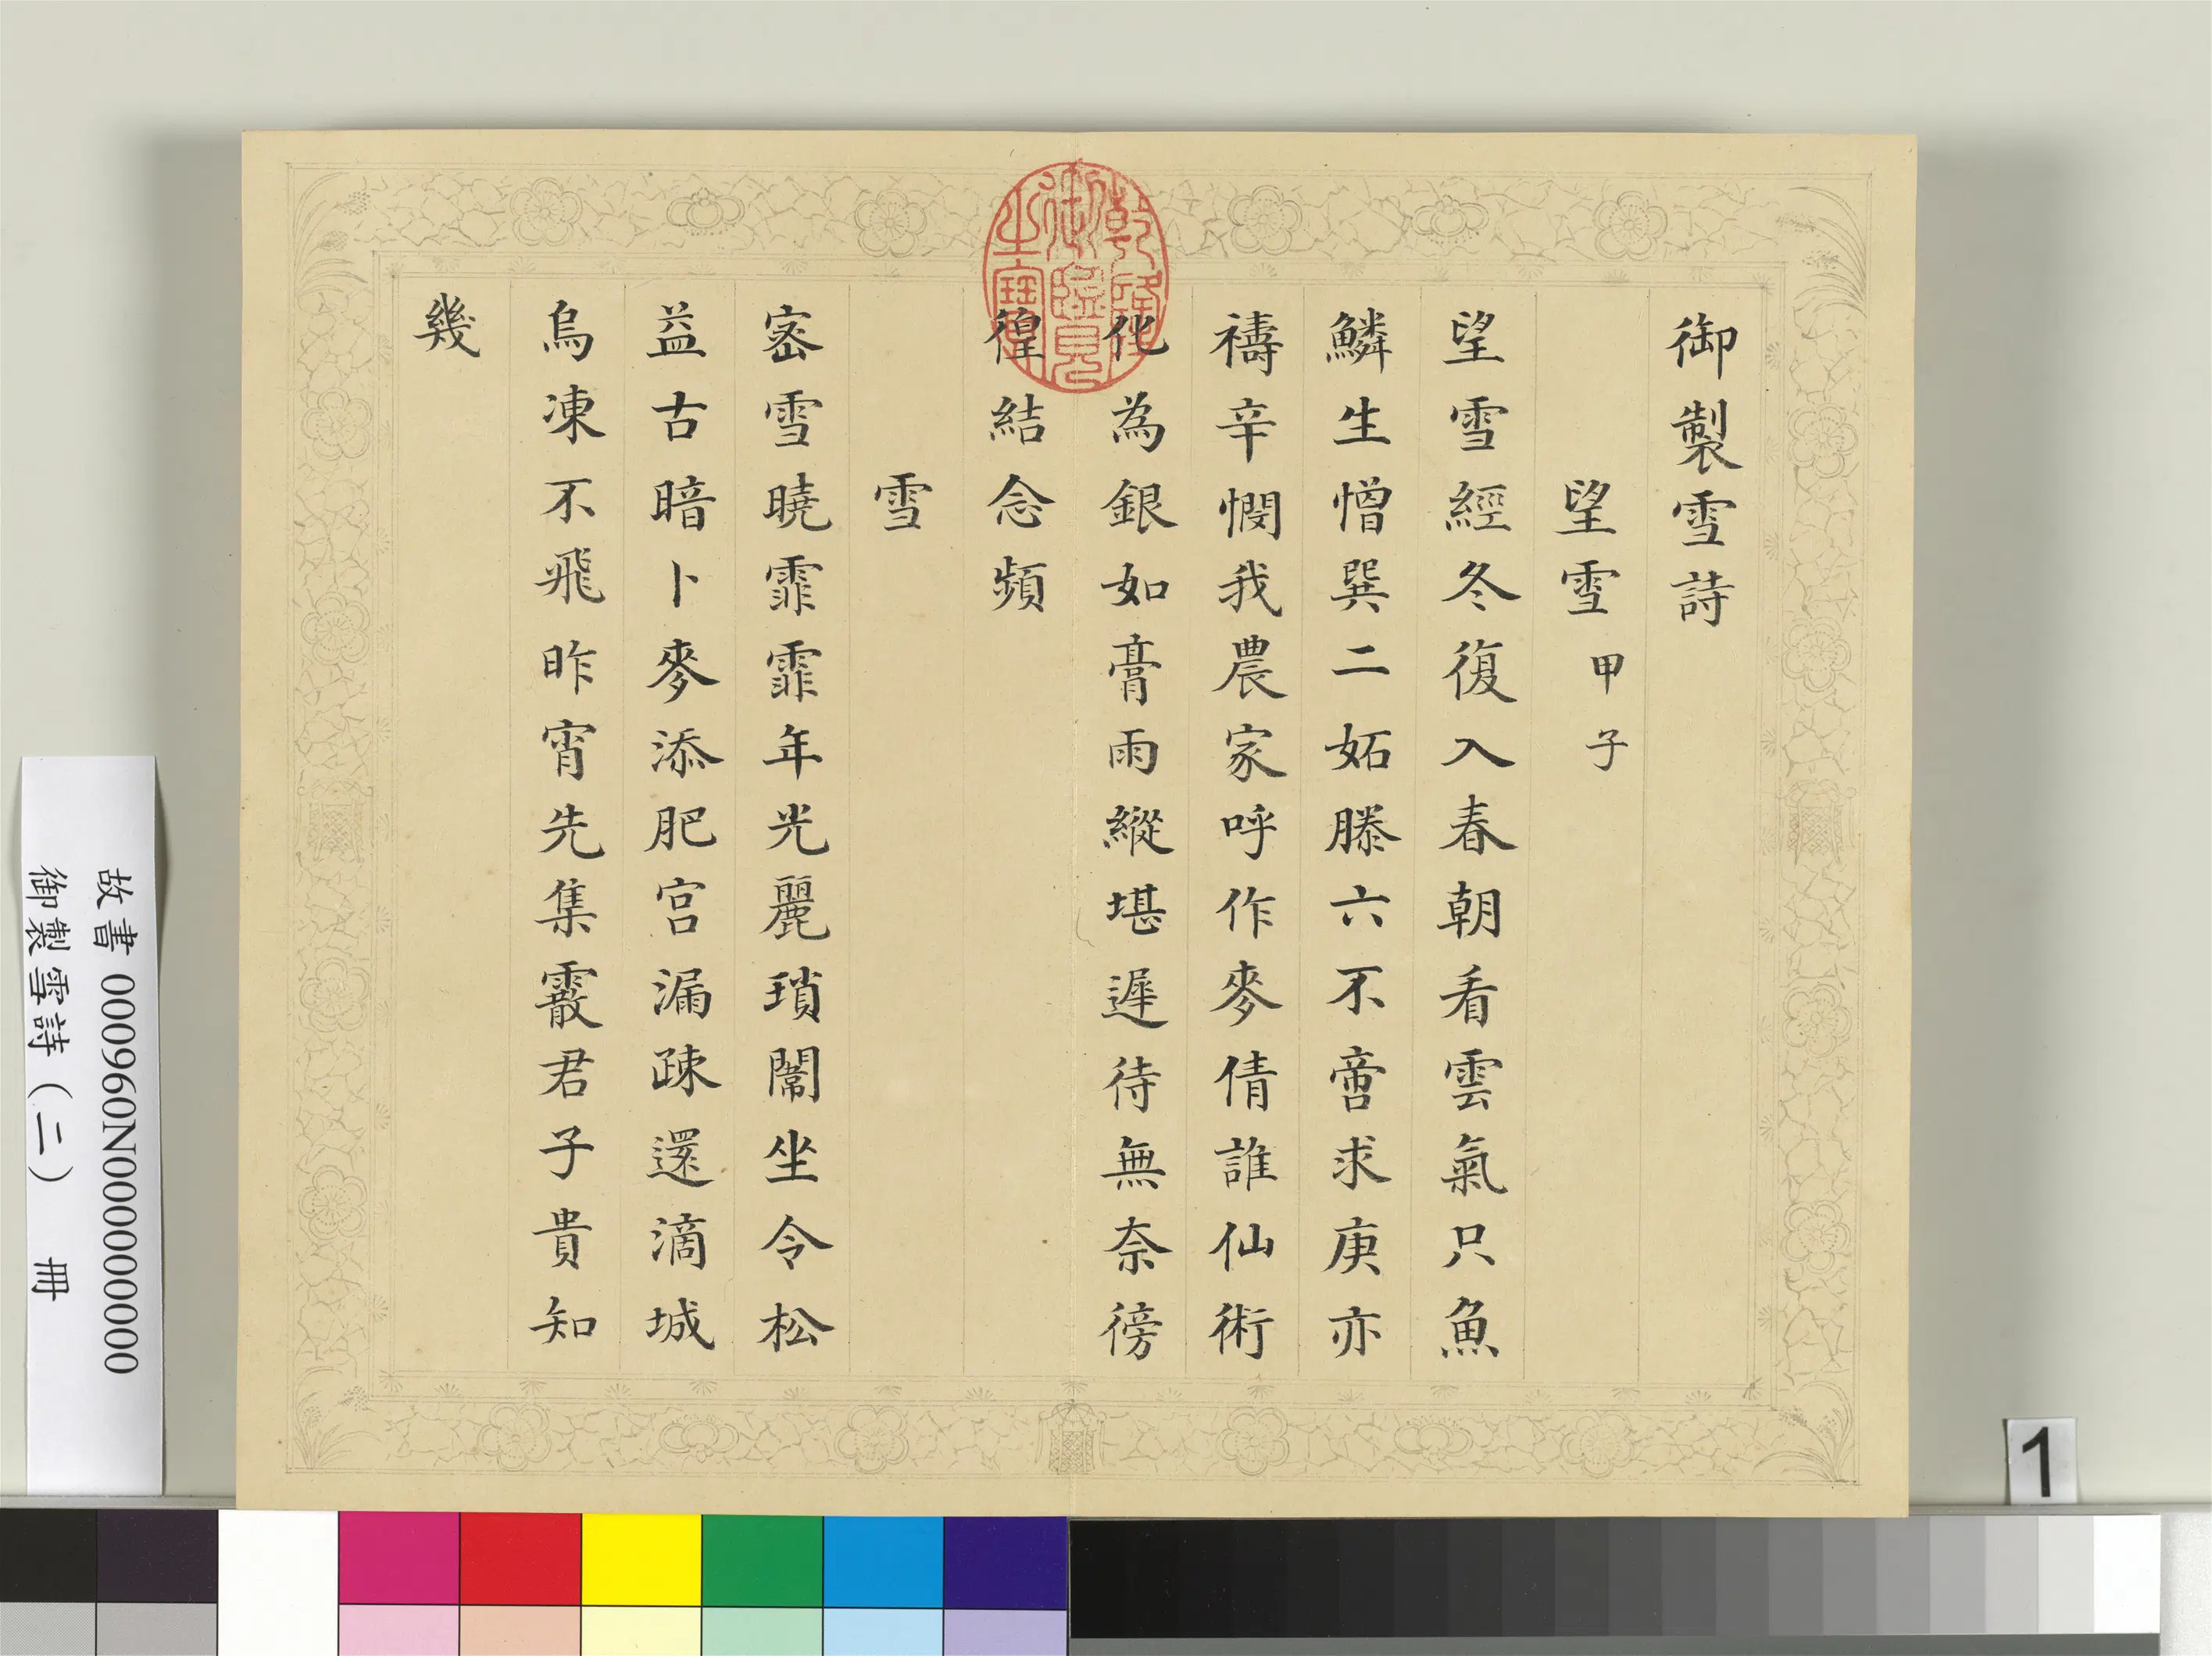 御製雪詩
望雪甲子
望雪經冬復入春朝看雲氣只魚
鱗生憎巽二妬滕六不啻求庚亦
禱辛憫我農家呼作麥倩誰仙術
化為銀如膏雨縱堪遲待無奈徬
徨結念頻
雪
密雪曉霏霏年光麗瑣闈坐令松
益古暗卜麥添肥宮漏疎還滴城
烏凍不飛昨宵先集霰君子貴知
幾
乾隆
御覽
之寶
故書 000960N000000000
御製雪詩(二) 冊
1